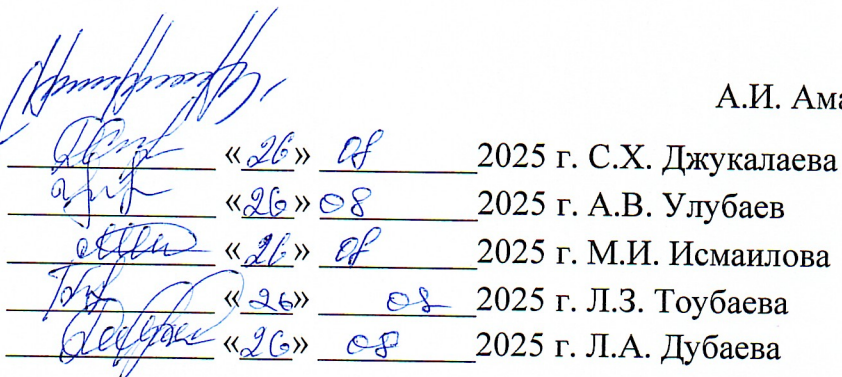 А.И. Ама
«26» 08 2025 г. С.Х. Джукалаева
«26» 08 2025 г. А.В. Улубаев
«26» 08 2025 г. М.И. Исмаилова
«26» 08 2025 г. Л.З. Тоубаева
«26» 08 2025 г. Л.А. Дубаева